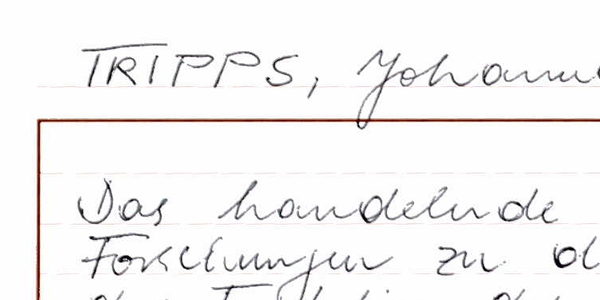 TRIPPS, Johann
Das handelnde
Forschungen zu